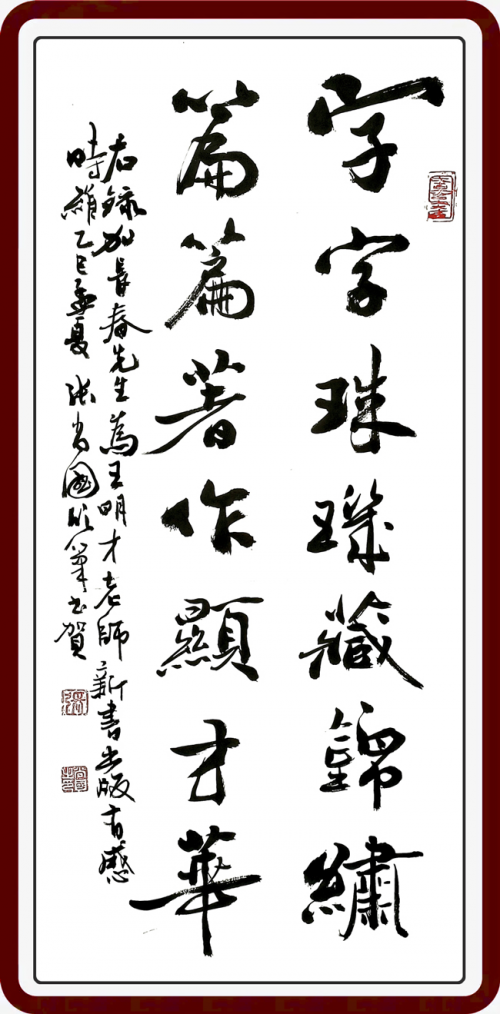 字字珠璣藏錦繡
篇篇著作顯才華
右錄長春先生為王明才老師新書出版有感
時維乙巳孟夏 張尚國欣筆書賀